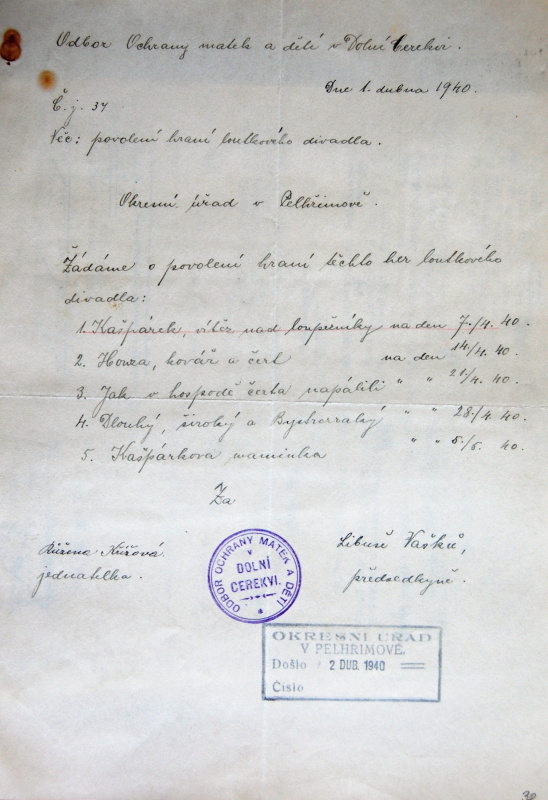 Odbor Ochrany matek a dětí v Dolní Cerekvi.
Dne 1. dubna 1940.
Č.j. 37
Věc: povolení hraní loutkového divadla.
Okresní úřad v Pelhřimově.
Žádáme o povolení hraní těchto her loutkového
divadla:
1. Kašpárek, vítěz nad loupežníky na den 7./4. 40.
2. Honza, kovář a čert na den 14./4. 40.
3. Jak v hospodě čerta napálili " " 21./4. 40.
4. Dlouhý, široký a Bystrozraký " " 28./4. 40.
5. Kašpárkova maminka " " 5./5. 40.
Za
Růžena
Libuše Vašků,
jednatelka.
předsedkyně.
ODBOR OCHRANY MATEK A DĚTÍ
V
DOLNÍ
CEREKVI.
OKRESNÍ ÚŘAD
V PELHŘIMOVĚ.
Došlo 2 DUB. 1940
Číslo